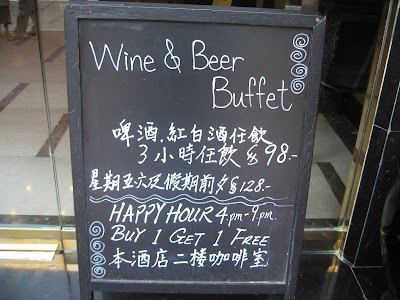 Wine & Beer
Buffet
啤酒.紅白酒任飲
3小時任飲 $98.-
星期五六及假期前夕$128.-
HAPPY HOUR 4.pm-9.pm.
BUY 1 GET 1 FREE
本酒店二楼咖啡室